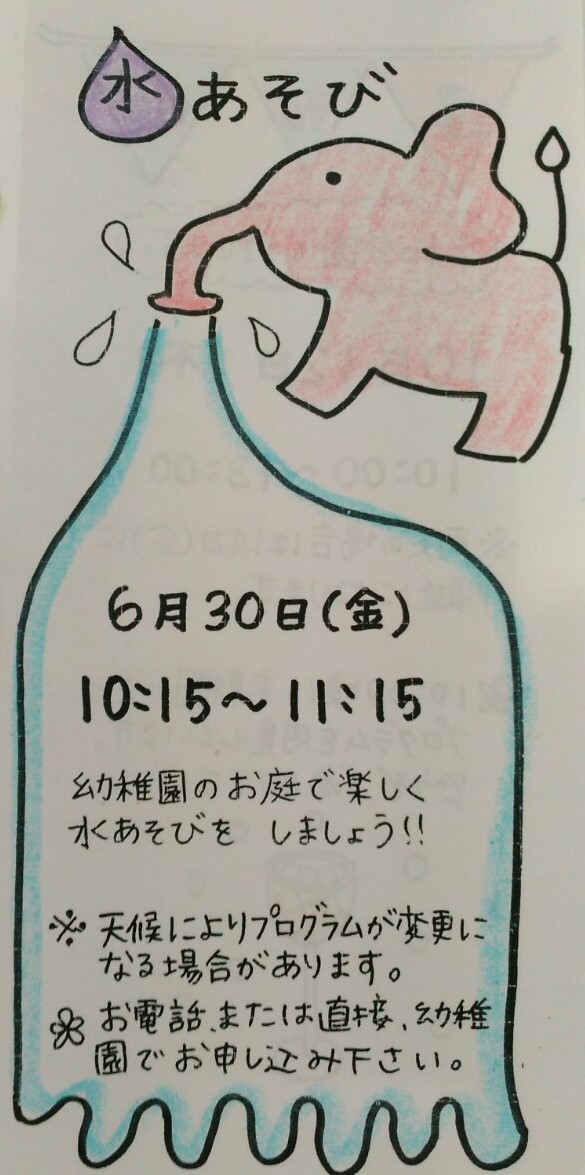 水あそび
6月30日(金)
10:15〜11:15
幼稚園のお庭で楽しく
水あそびを しましょう!!
※ 天候によりプログラムが変更に
なる場合があります。
お電話、または直接、幼稚
園でお申し込み下さい。